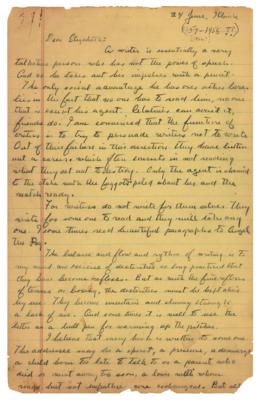 24 June, 
Dear Elizabeth:
A writer is essentially a very
talkative person who has not the power of speech.
And so he takes out his impulses with a pencil.
The only social advantage he has over other bores
lies in the fact that no one has to read him, no one
that is except his agent. Relatives can avoid it,
friends do. I am convinced that the function of
critics is to try to persuade writers not to write
Out of their failure in this direction they have built
out a career which often consists in not reading
what they set out to destroy. Only the agent is chained
to the stake with the faggots piled about her and the
match ready.
For writers do not write for themselves. They
write for some one to read and they will take any
one. I some times read beautiful paragraphs to Angel
the dog.
The balance and flow and rythm of writing is to
my mind an exercise of dexterities so long practiced that
they have become reflexes. But as with the fine reflexes
of tennis or boxing, the dexterities must be kept alive
by use. They become uncertain and clumsy through
a lack of use. And some times it is well to use the
letter as a bull pen for warming up the pitcher.
I believe that every book is written to some one
The addressee may be a spirit, a presence, a
a child born too late to talk to or a parent who
died or went away too soon, a lover with whom
vows but not are exchanged. But all